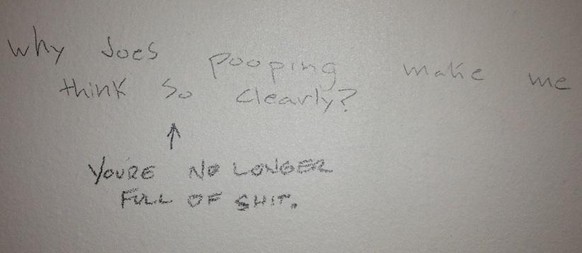 why does pooping make me
think so clearly?
YOU'RE NO LONGER
FULL OF SHIT.